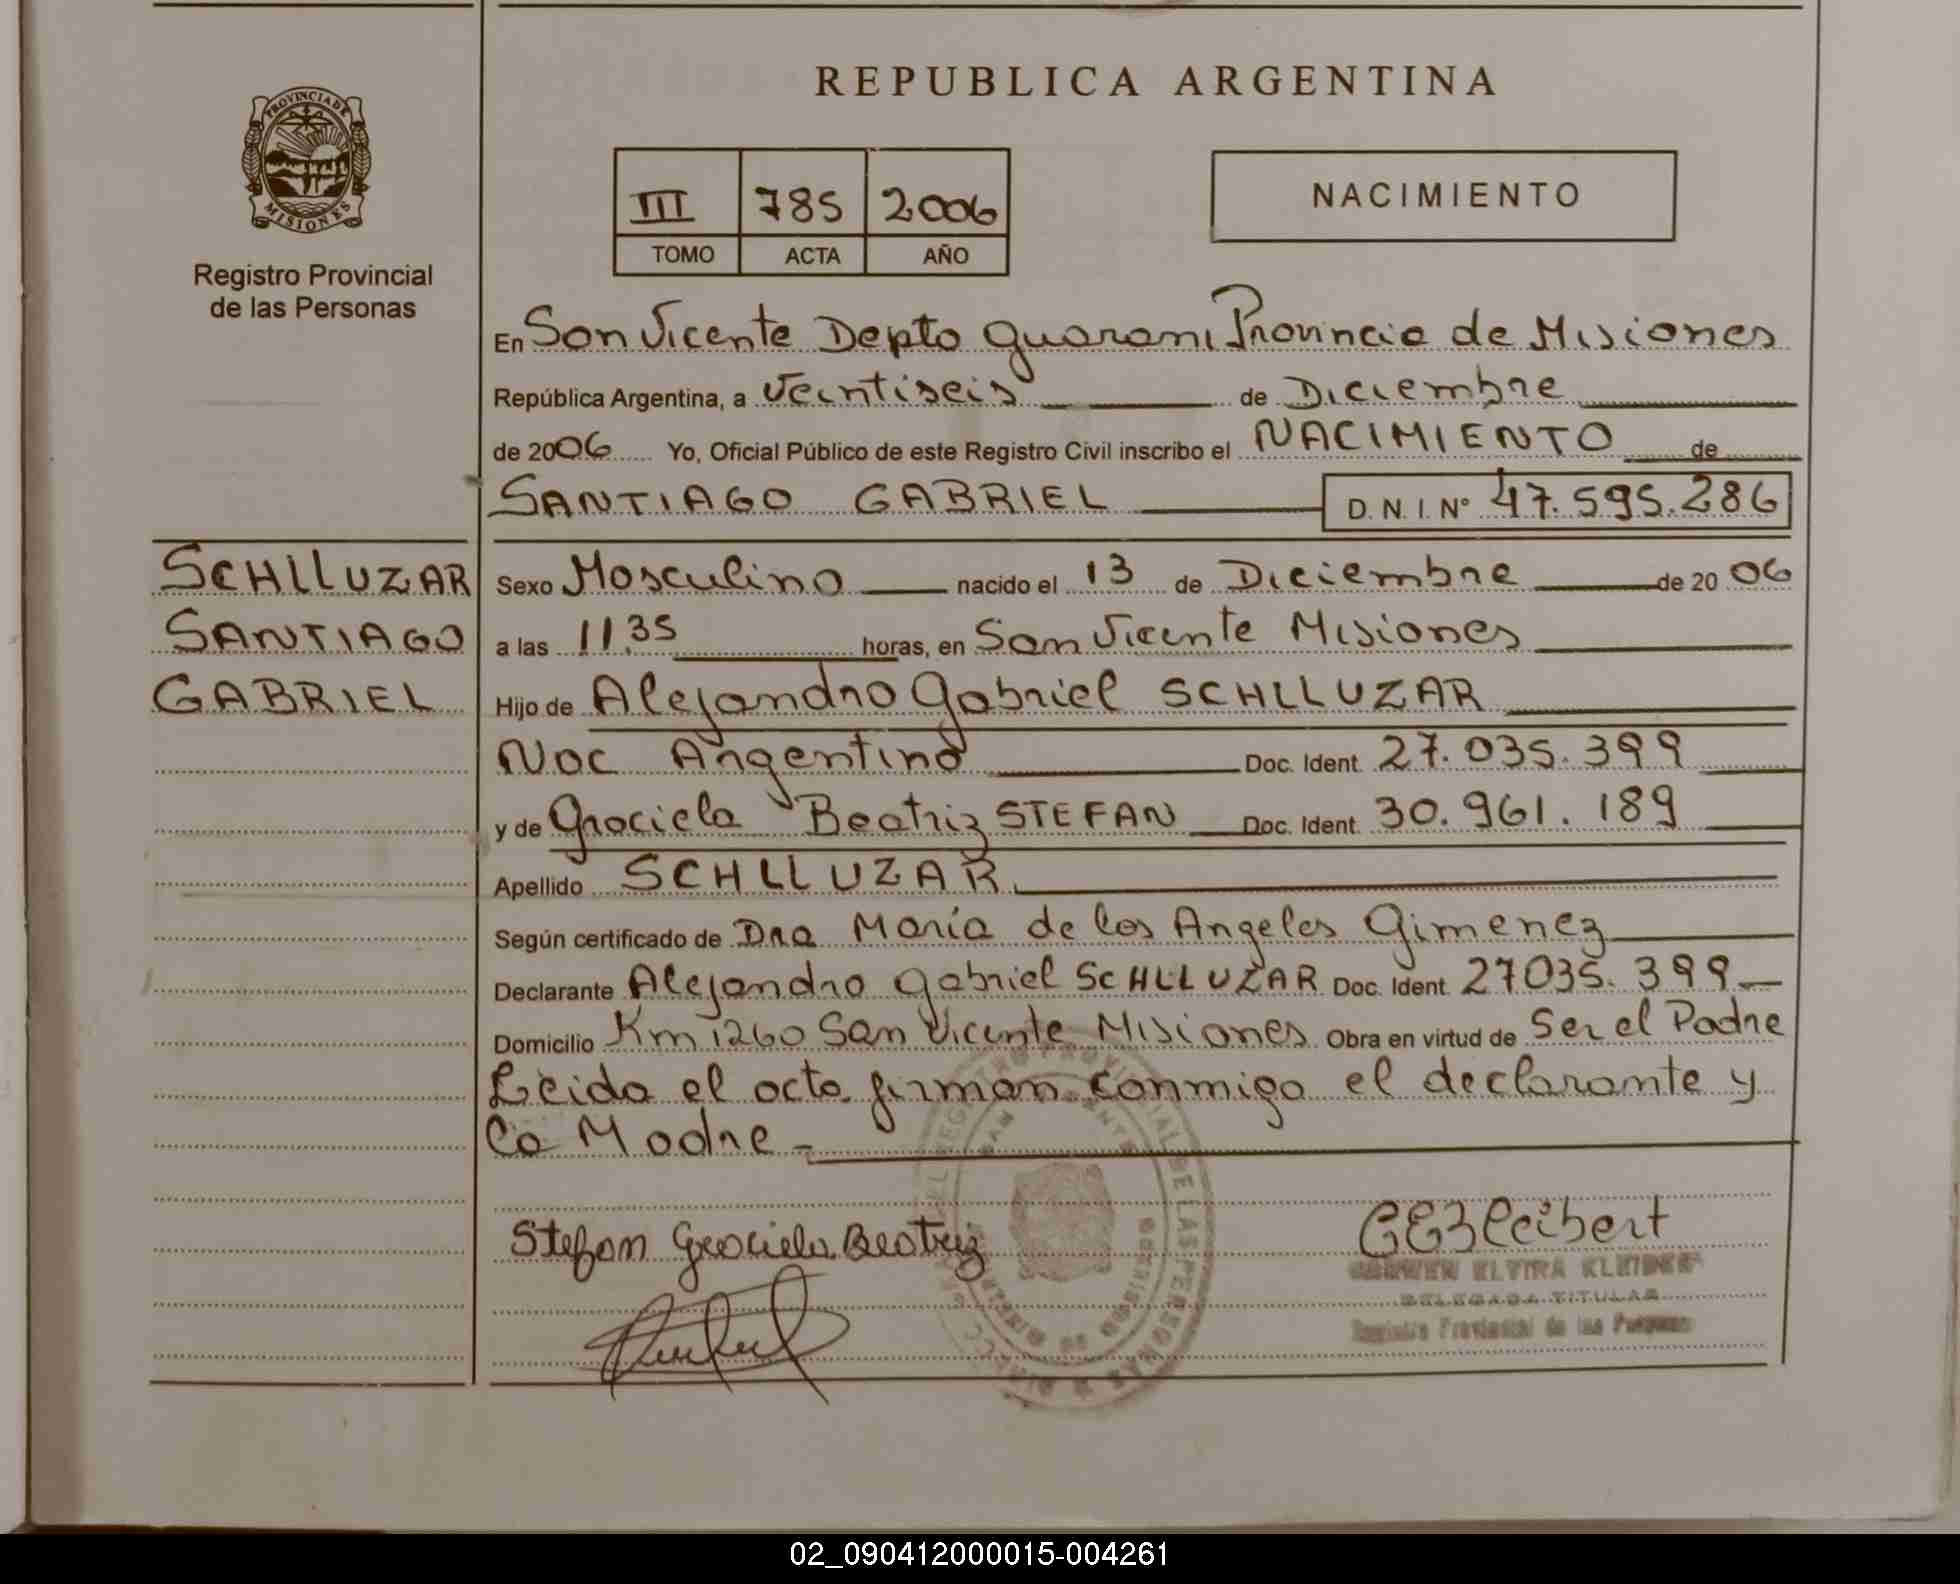 REPUBLICA ARGENTINA
PROVINCIA DE
MISIONES
III 785 2006
TOMO ACTA AÑO
NACIMIENTO
Registro Provincial
de las Personas
En San Vicente Depto Guarani Provincia de Misiones
República Argentina, a Veintiseis de Diciembre
de 2006 Yo, Oficial Público de este Registro Civil inscribo el NACIMIENTO de
SANTIAGO GABRIEL D.N.I. Nº 47.595.286
SCHLLUZAR
SANTIAGO
GABRIEL
Sexo Masculino nacido el 13 de Diciembre de 2006
a las 11.35 horas, en San Vicente Misiones
Hijo de Alejandro Gabriel SCHLLUZAR
Nac Argentino Doc. Ident. 27.035.399
y de Graciela Beatriz STEFAN Doc. Ident. 30.961.189
Apellido SCHLLUZAR
Según certificado de Dra María de los Angeles Gimenez
Declarante Alejandro Gabriel SCHLLUZAR Doc. Ident. 27035.399
Domicilio Km 1260 San Vicente Misiones Obra en virtud de Ser el Padre
Leida el acta firman conmigo el declarante y
la Madre -
Stefan Graciela Beatriz
CEKleibert
ELVIRA
DELEGADA TITULAR
Registro Provincial de las Personas
02_090412000015-004261